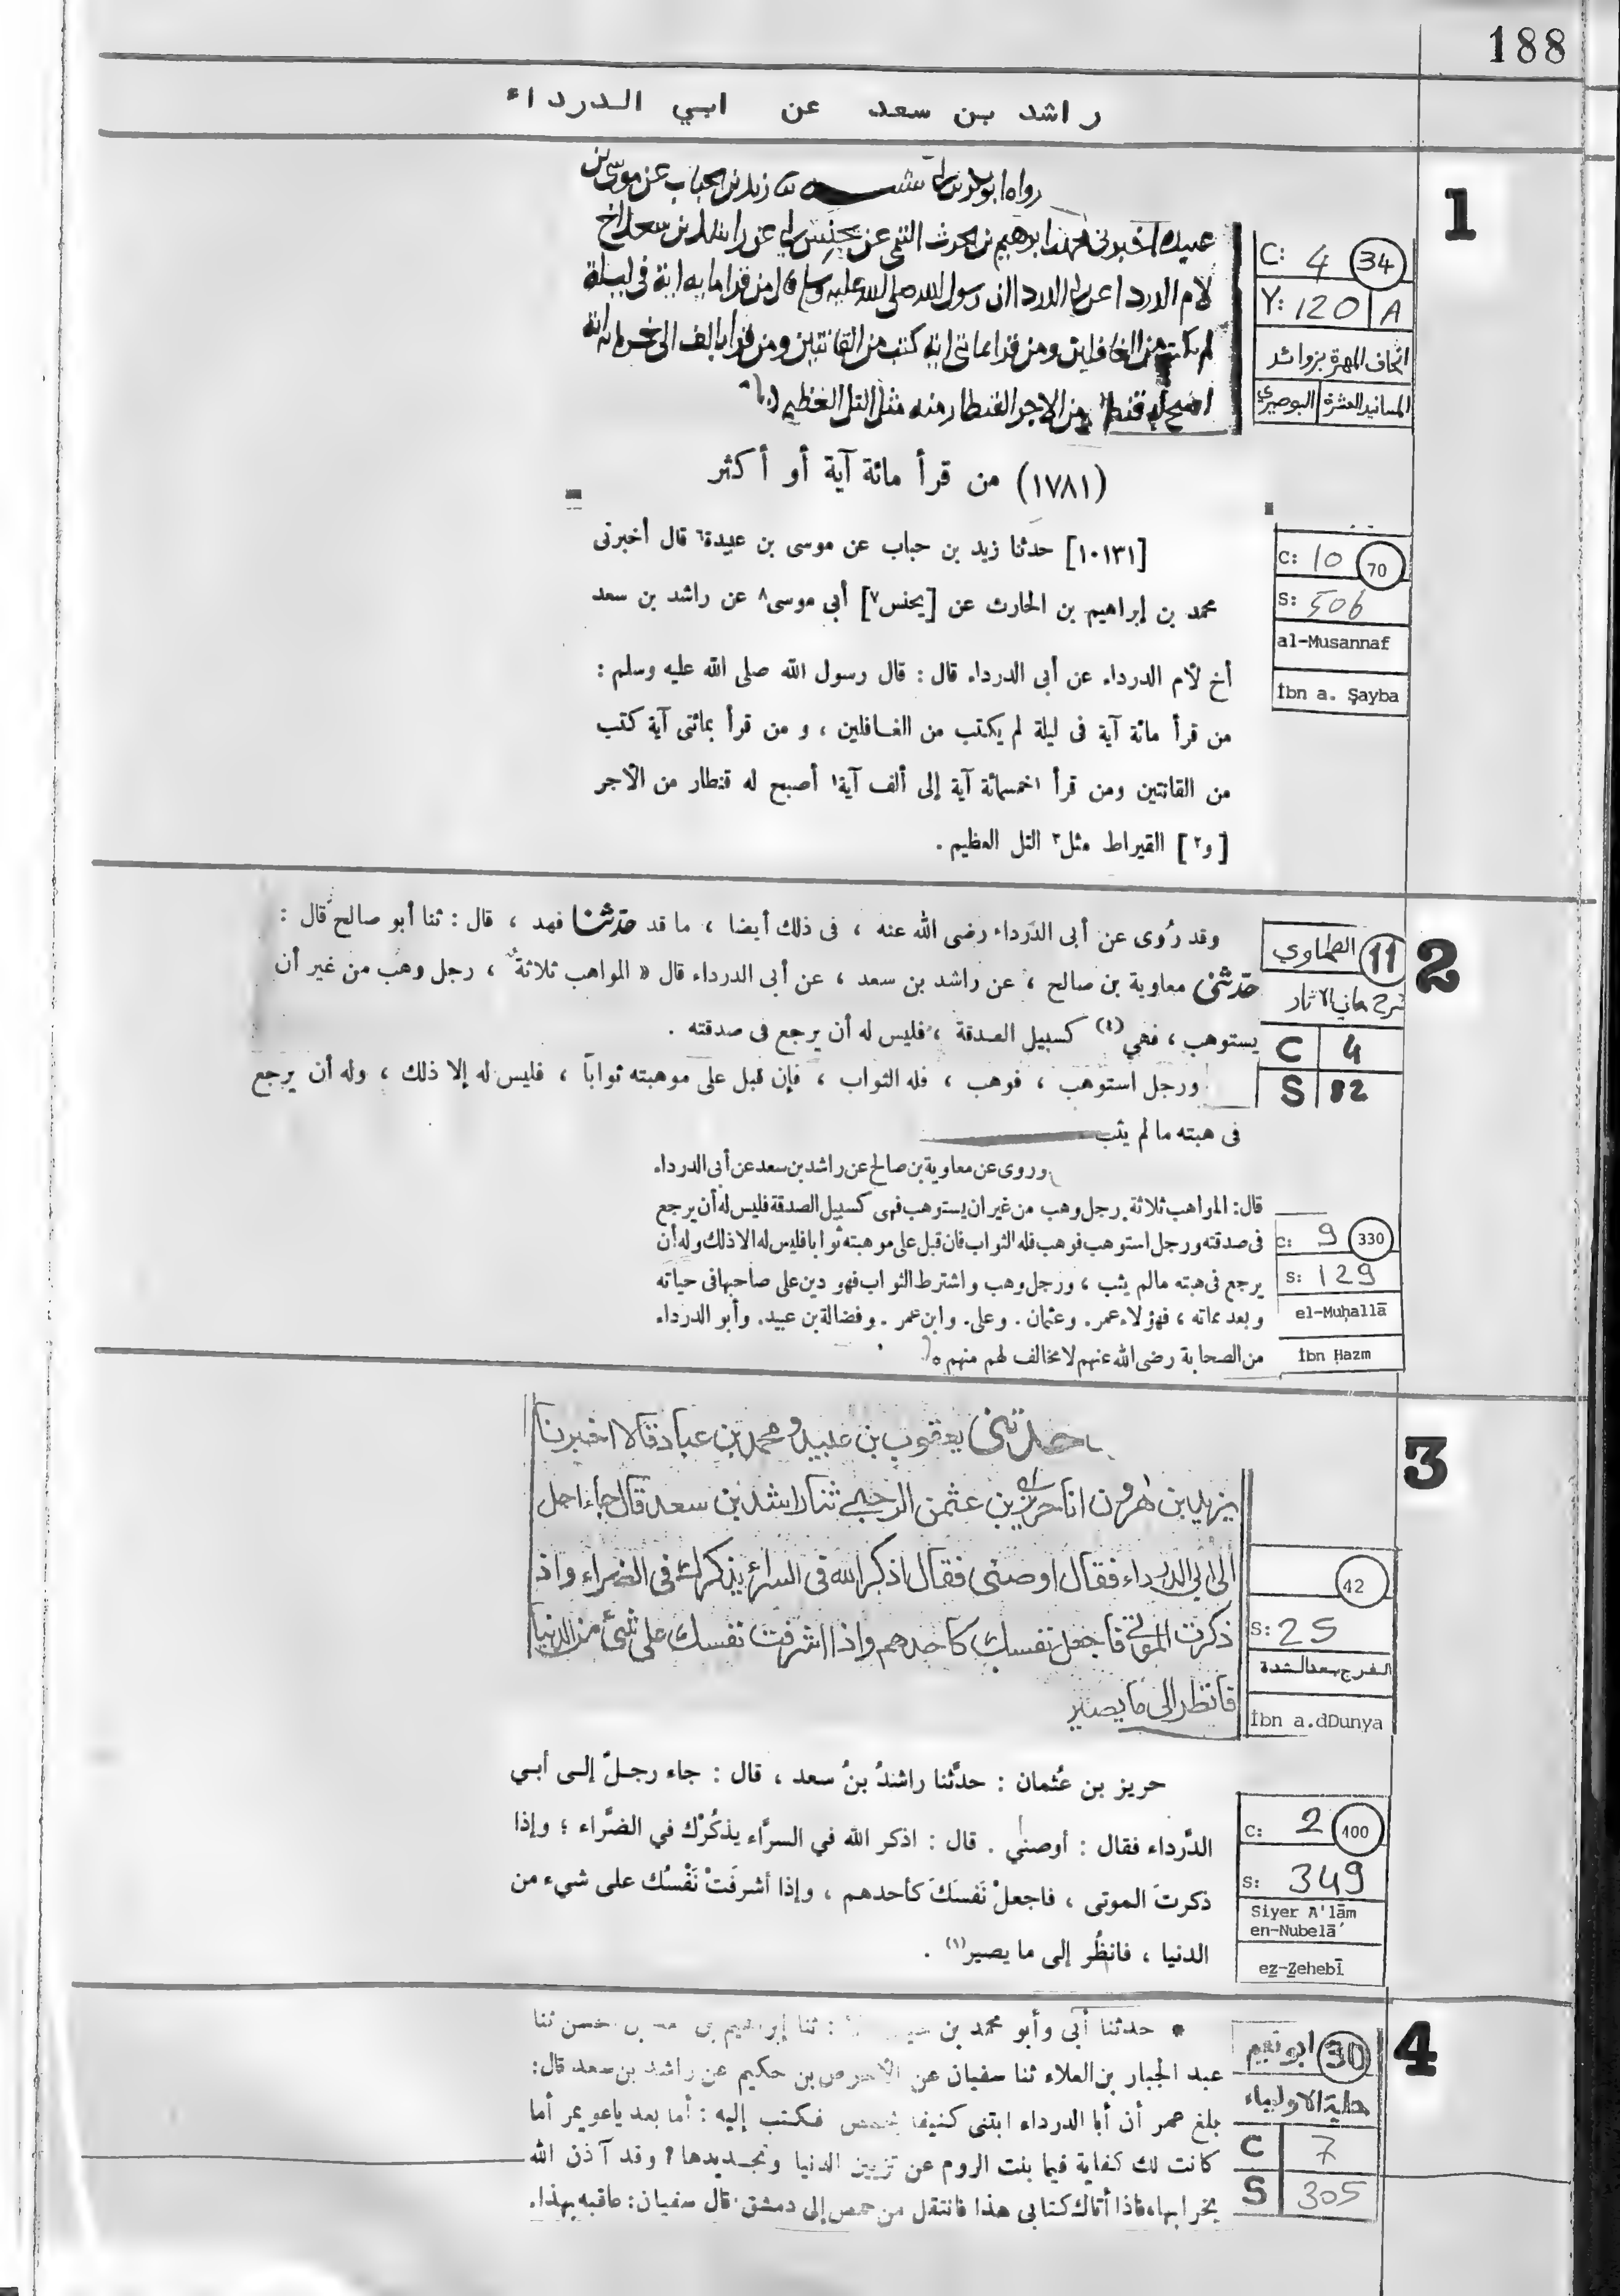 188
راشد بن سعد عن ابي الدرداء
1
رواه ابو بكر بن ابي شيبه ثنا زيد بن الحباب عن موسى بن
عبيده اخبرني محمد ابن ابرهيم بن الحرث التيمي عن يحنس ابي عن راشد بن سعد اخ
لام الدردا عن ابي الدردا ان رسول الله صلى الله عليه وسلم قال من قرا مايه اية في ليلة
لم يكتب من الغافلين ومن قرا بمائتي ايه كتب من القانتين ومن قرا بالف الى خمسمائة اية
اصبح له قنطار من الاجر القنطار منه مثل التل العظيم
C: 4 34
Y: 120 A
اتحاف المهرة بزوائد
المسانيد العشرة البوصيري
(١٧٨١) من قرأ مائة آية أو أكثر
[١٠١٣١] حدثنا زيد بن حباب عن موسى بن عبيدة٦ قال أخبرنى
محمد بن إبراهيم بن الحارث عن [يحنس٧] أبي موسى٨ عن راشد بن سعد
أخ لأم الدرداء عن أبى الدرداء قال : قال رسول الله صلى الله عليه وسلم :
من قرأ مائة آية فى ليلة لم يكتب من الغافلين ، و من قرأ بمائتى آية كتب
من القانتين ومن قرأ ١خمسمائة آية إلى ألف آية١ أصبح له قنطار من الأجر
[و٢] القيراط مثل٣ التل العظيم .
C: 10 70
S: 506
al-Musannaf
İbn a. Şayba
2
وقد رُوى عن أبى الدَرداء رضى الله عنه ، فى ذلك أيضا ، ما قد حدّثنا فهد ، قال : ثنا أبو صالح قال :
حدّثنى معاوية بن صالح ، عن راشد بن سعد ، عن أبى الدرداء قال « المواهب ثلاثة ، رجل وهب من غير أن
يستوهب ، فهي (٤) كسبيل الصدقة ، فليس له أن يرجع فى صدقته .
ورجل استوهب ، فوهب ، فله الثواب ، فإن قبل على موهبته ثواباً ، فليس له إلا ذلك ، وله أن يرجع
فى هبته ما لم يثب
الطحاوي 11
شرح معاني الآثار
C 4
S 82
وروى عن معاوية بن صالح عن راشد بن سعد عن أبى الدرداء
قال : المواهب ثلاثة . رجل وهب من غير ان يستوهب فهى كسبيل الصدقة فليس له أن يرجع
فى صدقته ورجل استوهب فوهب فله الثواب فان قبل على موهبته ثوابا فليس له الا ذلك وله أن
يرجع فى هبته مالم يثب ، ورجل وهب واشترط الثواب فهو دين على صاحبها فى حياته
وبعد مماته ، فهؤلاء عمر . وعثمان . وعلى . وابن عمر . وفضالة بن عبيد . وأبو الدرداء
من الصحابة رضى الله عنهم لا مخالف لهم منهم .
C: 9 330
S: 129
el-Muḥallā
İbn Ḥazm
3
حدثني يعقوب بن عبيد ومحمد بن عباد قالا اخبرنا
يزيد بن هرون انا حريز بن عثمن الرحبي ثنا راشد بن سعد قال جاء رجل
الى ابي الدرداء فقال اوصني فقال اذكر الله في السراء يذكرك في الضراء واذا
ذكرت الموتى فاجعل نفسك كاحدهم واذا اشرفت نفسك على شئ من الدنيا
فانظر الى ما يصير
42
S: 25
الفرج بعد الشدة
İbn a.dDunya
حريز بن عُثمان : حدَّثنا راشدُ بنُ سعد ، قال : جاء رجلٌ إلى أبي
الدَّرداء فقال : أوصني . قال : اذكر الله في السرَّاء يذكُرْك في الضَّراء ؛ وإذا
ذكرتَ الموتى ، فاجعلْ نَفسَكَ كأحدهم ، وإذا أشرفَتْ نَفْسُك على شيء من
الدنيا ، فانظُر إلى ما يصير(١) .
C: 2 100
S: 349
Siyer A'lām
en-Nubelā'
ez-Zehebī
4
* حدثنا أبى وأبو محمد بن : ثنا إبراهيم بن حسن ثنا
عبد الجبار بن العلاء ثنا سفيان عن الأحوص بن حكيم عن راشد بن سعد قال :
بلغ عمر أن أبا الدرداء ابتنى كنيفا بحمص فكتب إليه : أما بعد ياعويمر أما
كانت لك كفاية فيما بنت الروم عن تزيين الدنيا وتجديدها ؟ وقد آذن الله
بخرابها ، فاذا أتاك كتابي هذا فانتقل من حمص إلى دمشق . قال سفيان : عاقبه بهذا .
ابو نعيم 30
حلية الاولياء
C 7
S 305